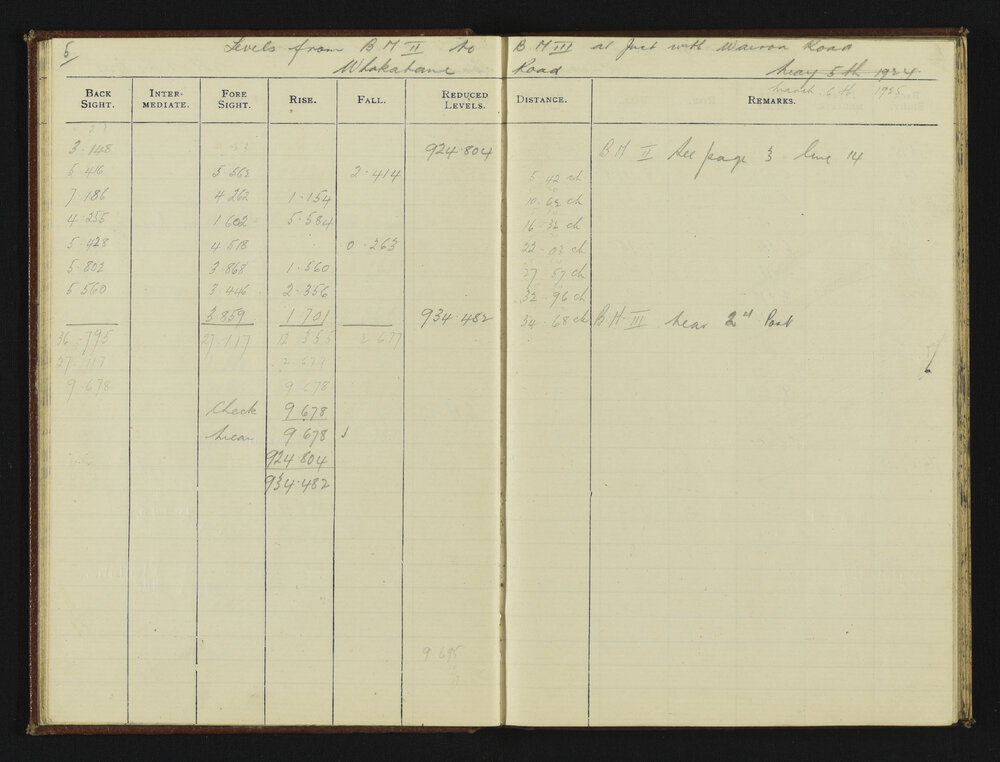 6 Levels from B M II to B M III at Junt with Wairoa Road
Whakatane Road May 5th 1924
March 6th 1925
BACK SIGHT. INTER-MEDIATE. FORE SIGHT. RISE. FALL. REDUCED LEVELS. DISTANCE. REMARKS.
3.148 924.804 B M II See page 3 line 14
5 416 5 562 2.414 5 42 ch
7.186 4 262 1.154 10.62 ch
4.255 1 602 5.584 16.32 ch
5.428 4 518 0.263 22.02 ch
5.802 3 868 1.560 27.57 ch
5 560 3.446 2.356 32.96 ch
3.859 1 701 934.482 34.68 ch B M III near 2nd Post
36.795 27.117 12 355 2 677
27.117 2 677
9.678 9 678
Check 9 678
Mean 9 678
924 804
934.482
9 695